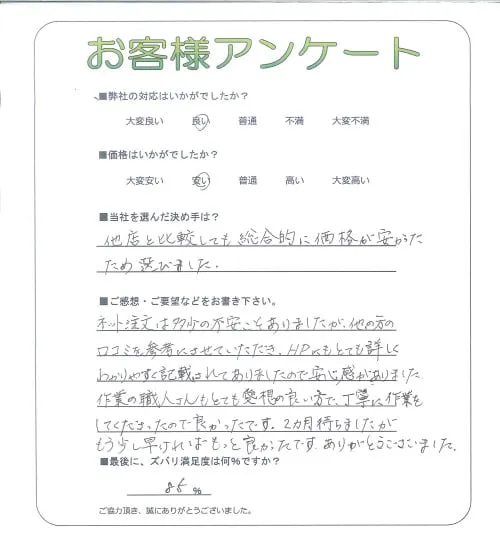 お客様アンケート
■弊社の対応はいかがでしたか?
大変良い 良い 普通 不満 大変不満
■価格はいかがでしたか?
大変安い 安い 普通 高い 大変高い
■当社を選んだ決め手は?
他店と比較しても総合的に価格が安かった
ため選びました.
■ご感想・ご要望などをお書き下さい。
ネット注文は多少の不安こそありましたが、他の方の
口コミを参考にさせていただき、HPにもとても詳しく
わかりやすく記載されてありましたので安心感がありました
作業の職人さんもとても愛想の良い方で、丁寧に作業を
してくださったので良かったです。2カ月待ちましたが
もう少し早ければもっと良かったです。ありがとうございました。
■最後に、ズバリ満足度は何%ですか?
85 %
ご協力頂き、誠にありがとうございました。